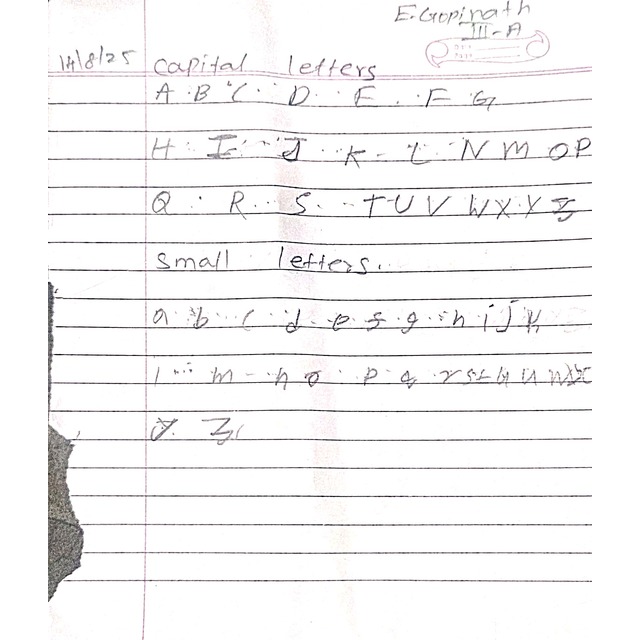 E. Gopinath
III-A
14/8/25 Capital letters
A B C D E F G
H I J K L N M O P
Q R S T U V W X Y Z
Small letters.
a b c d e f g h i j k
l m n o p q r s t u v w x
y z